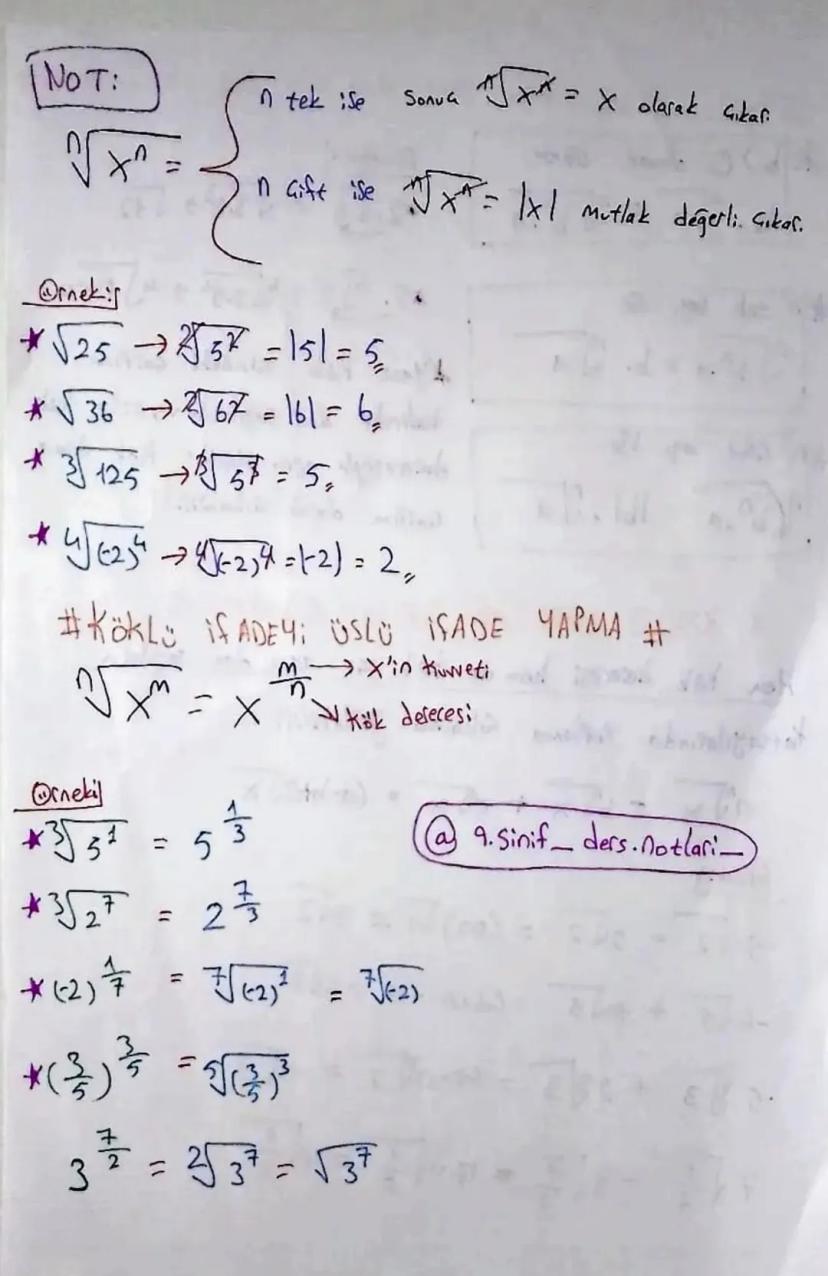 NOT:
n tek ise sonuç ⁿ√xⁿ = x olarak çıkar.
ⁿ√xⁿ =
n çift ise ⁿ√xⁿ = |x| mutlak değerli çıkar.
Örnek;
* √25 → ²√5² = |5| = 5
* √36 → ²√6² = |6| = 6
* ³√125 → ³√5³ = 5
* ⁴√(-2)⁴ → ⁴√(-2)⁴ = |-2| = 2
# KÖKLÜ İFADEYİ ÜSLÜ İFADE YAPMA #
ⁿ√xᵐ = x^(m/n) → x'in kuvveti
↘ kök derecesi
Örnek;
* ³√5¹ = 5^(1/3)
@ 9.sinif_ ders.notlari_
* ³√2⁷ = 2^(7/3)
* (-2)^(1/7) = ⁷√(-2)¹ = ⁷√(-2)
* (3/5)^(3/5) = ⁵√(3/5)³
3^(7/2) = ²√3⁷ = √3⁷